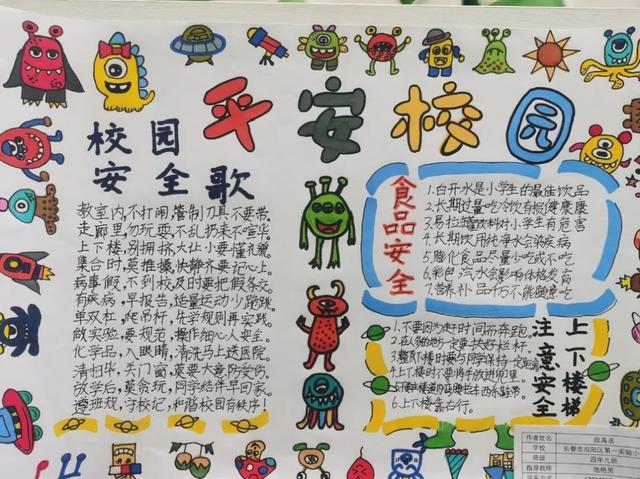 平安校园
校园
安全歌
教室内,不打闹,管制刀具不要带。
走廊里,勿玩耍,不乱扔来不喧华。
上下楼,别拥挤,大让小要懂礼貌
集合时,莫推搡,快静齐要记心上。
病事假,不到校,及时要把假条交
有疾病,早报告,适量运动少跑跳。
单双杠,爬吊杆,先学规则再实践。
做实验,要规范,操作细心人安全。
化学品,入眼睛,清洗马上送医院。
清扫毕,关门窗,莫要大意防受伤。
放学后,莫贪玩,同学结伴早回家。
遵班规,守校记,和谐校园有秩序!
食品安全
1.白开水是小学生的最佳饮品
2.长期过量吃冷饮有损健康
3.易拉罐饮料对小学生有危害
4.长期饮用纯净水会染疾病
5.膨化食品尽量少吃或不吃
6.彩色汽水影响体格发育
7.营养补品千万不能随意吃
上下楼梯
注意安全
1.不要因为赶时间而奔跑。
2.在人多的地方一定要扶好栏杆。
3.整队下楼时要与同学保持一定距离
4.上下楼时不要将手放进兜里。
6.上下楼靠右行。
作者姓名
学校 长春市双阳区第一实验小
班级 四年九班
指导教师
联系方式